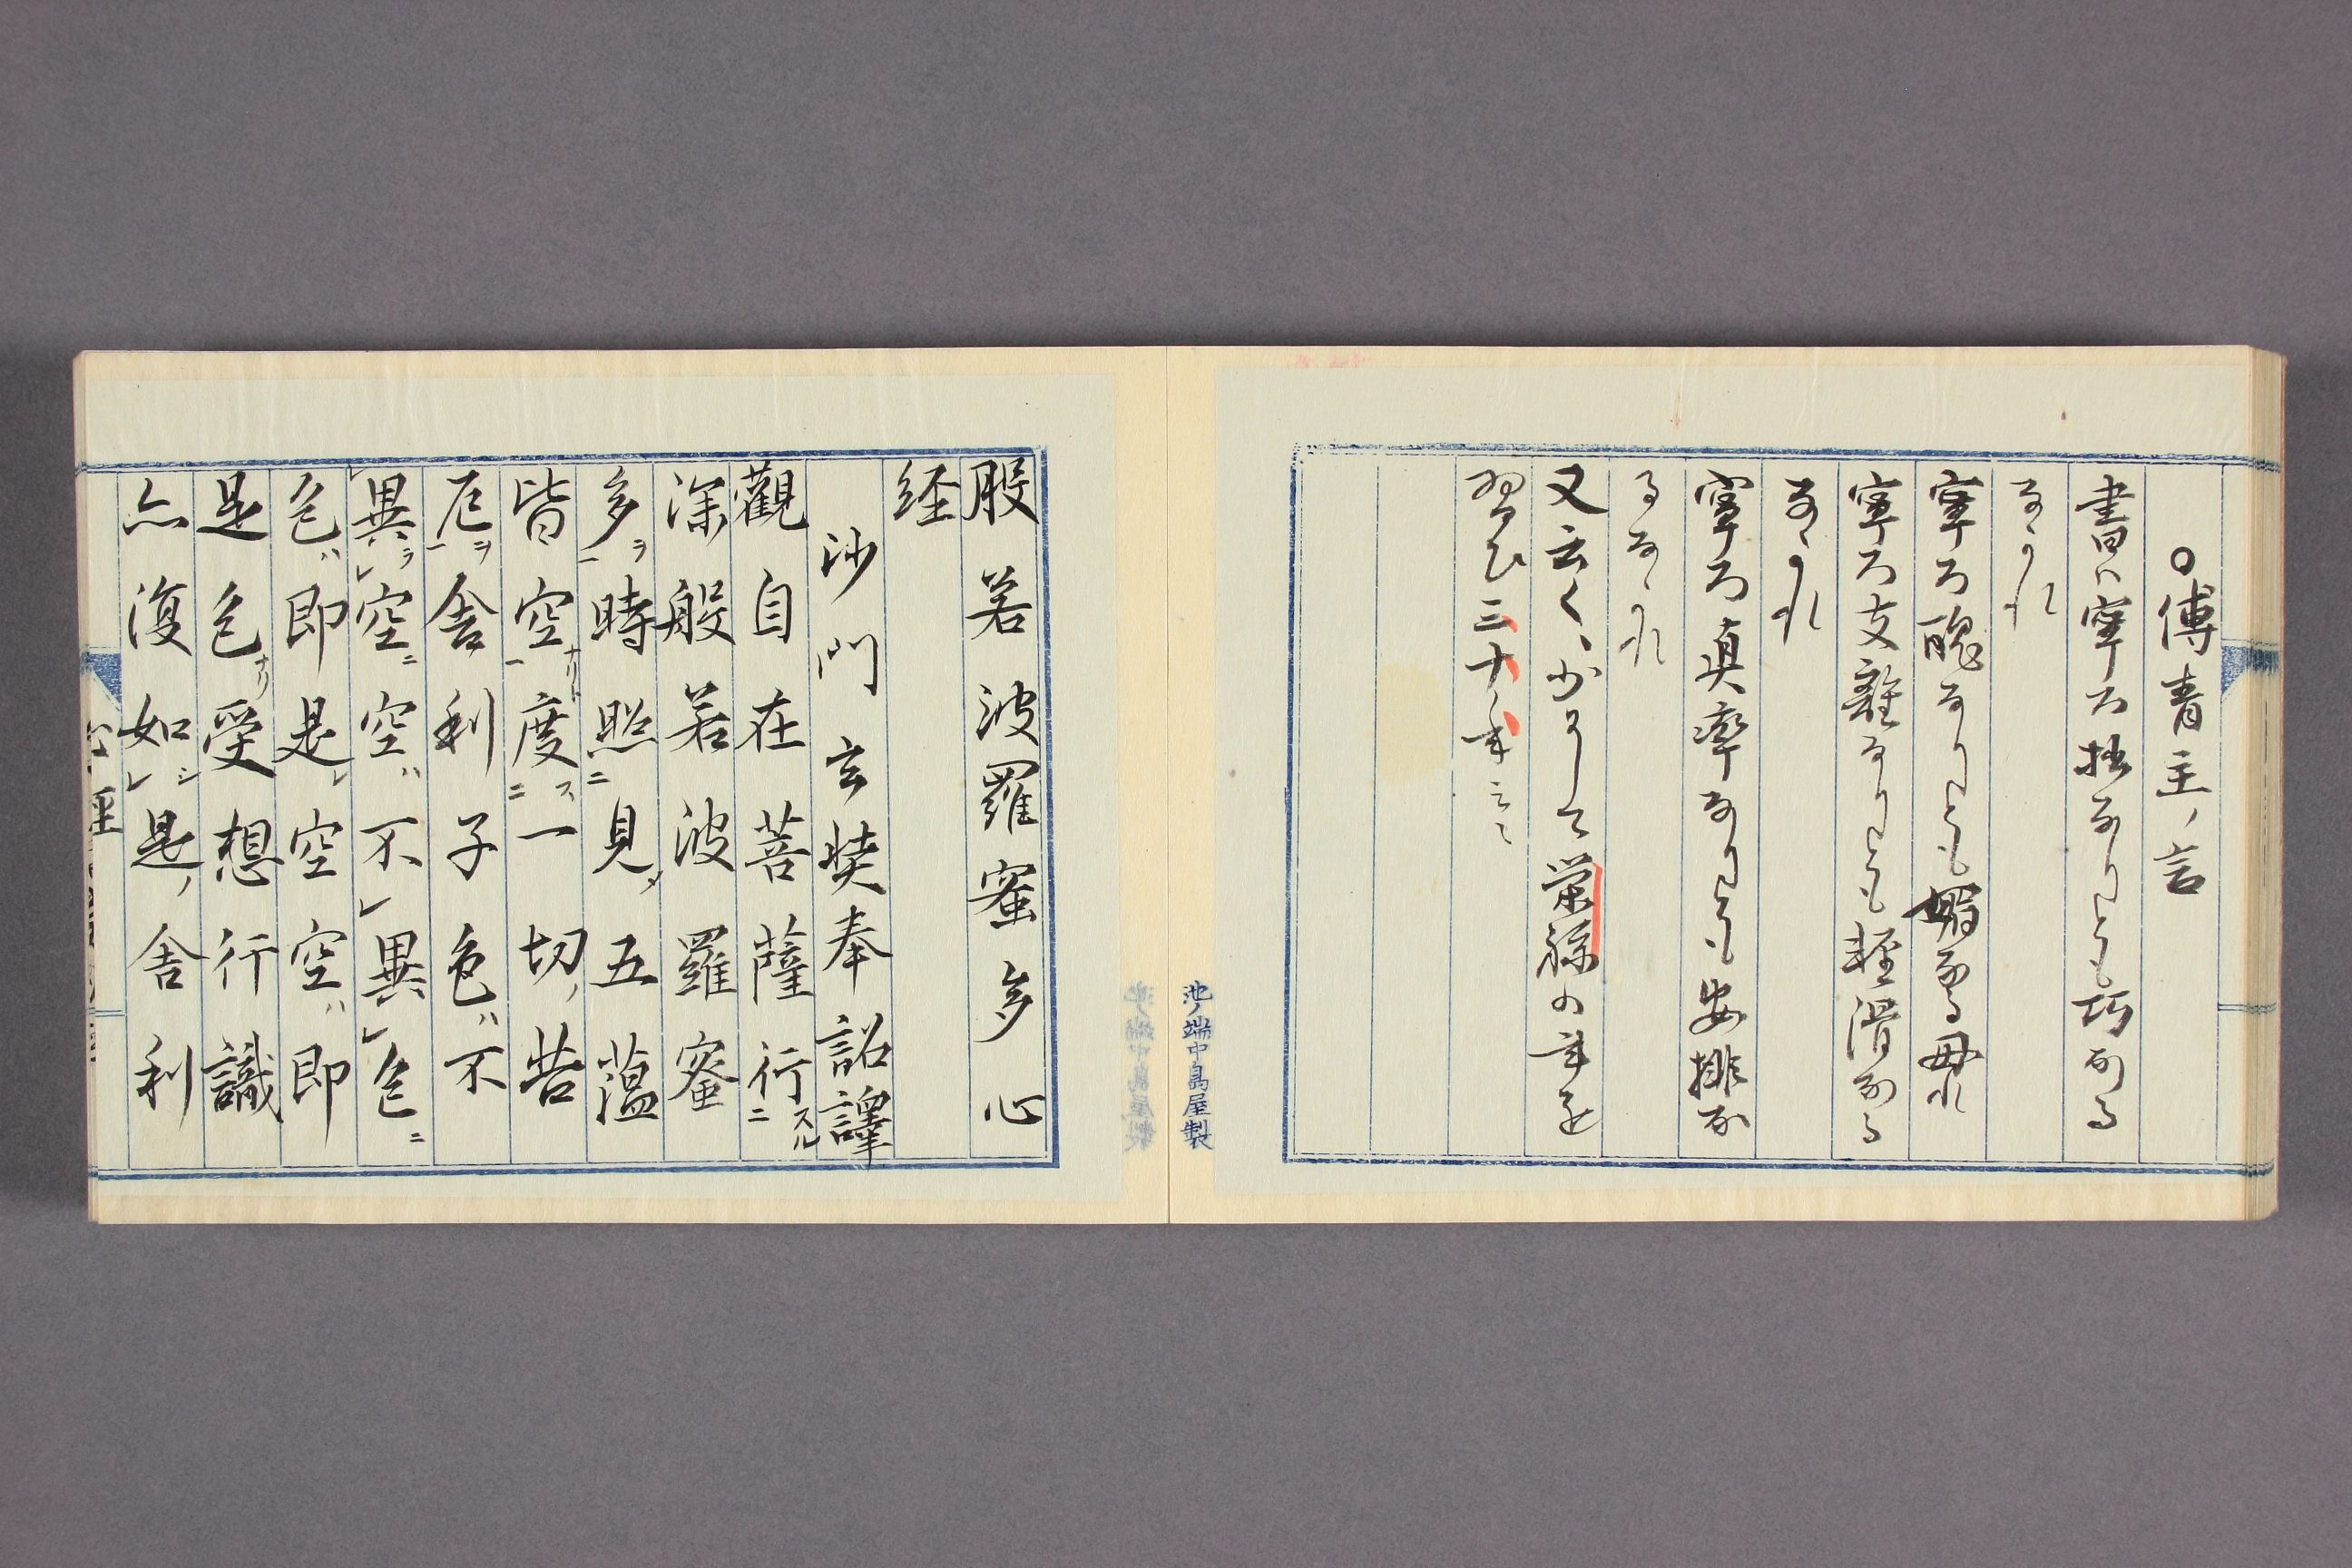 ○傅青主ノ言
書ハ寧ろ拙なりとも巧なる
なかれ
寧ろ醜なりとも媚なる毋れ
寧ろ支離なりとも軽滑なる
なかれ
寧ろ真率なりとも安排な
るなかれ
又云く、少うして栄禄の書を
習ひ三十年云々
池ノ端中島屋製
般若波羅蜜多心
経
沙門玄奘奉詔譯
觀自在菩薩行スル二
深般若波羅蜜
多ヲ一時照二見メ五蘊
皆空一ナリト度二ス一切ノ苦
厄一ヲ舎利子色ハ不
レ異ラレ空ニ空ハ不レ異レ色ニ
色ハ即是レ空空ハ即
是色ナリ受想行識
亦復如シレ是ノ舎利